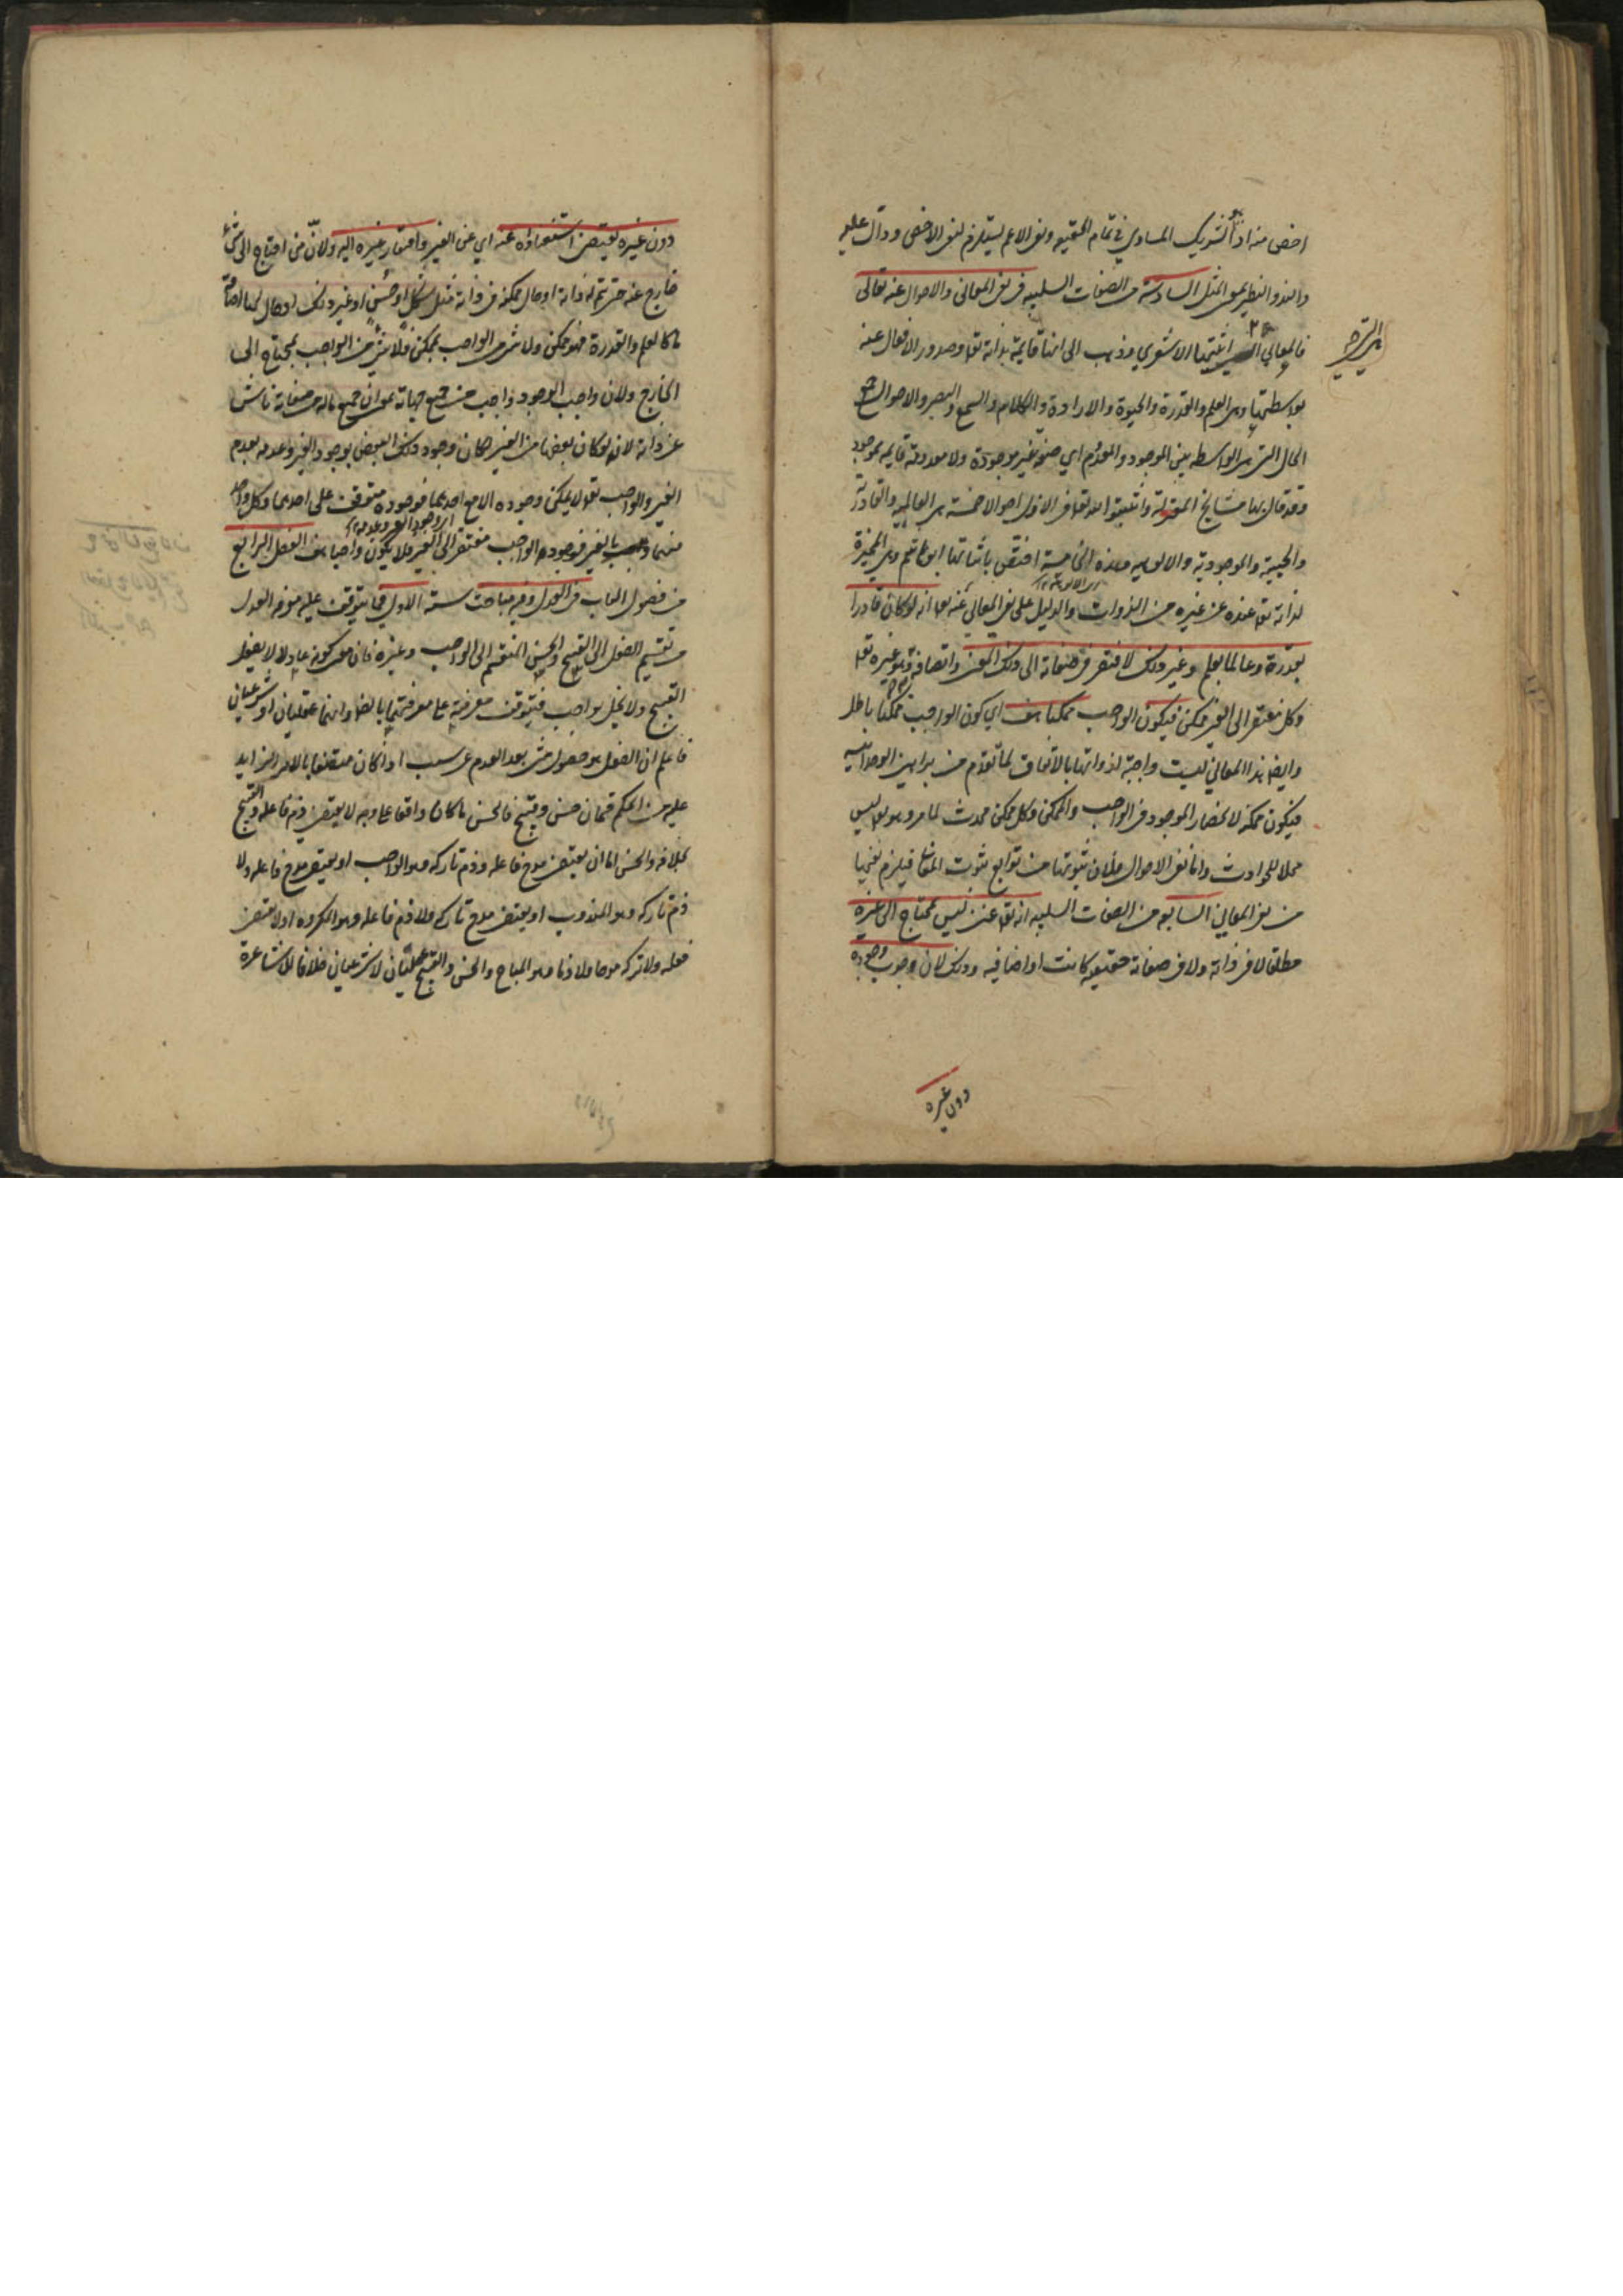 اخص منه اذ الشريك المساوي في تمام الحقيقة ونفي الاعم يستلزم نفي الاخص ودال عليه
والند والنظير بمعنى المثل السادسة من الصفات السلبيه في نفي المعاني والاحوال عنه تعالى
فالمعاني التي اثبتها الاشعري وذهب الى انها قايمة بذاته تع وصدور الافعال عنه
بواسطتها وهي العلم والقدرة والحيوة والارادة والكلام والسمع والبصر والاحوال جمع
الحال التي هي الواسطه بين الموجود والمعدوم اي صفة غير موجودة ولا معدومة قايمه بموجود
وقد قال بها مشايخ المعتزلة واثبتوا لله تع في الازل احوالا خمسة هي العالميه والقادرية
والحيية والموجودية والالوهيه وهذه الخامسة اختص باثباتها ابو هاشم وهي المميزة
لذاته تع عنده عن غيره من الذوات والدليل على نفي المعاني عنه تع انه لو كان قادرا
بقدرة وعالما بعلم وغير ذلك لافتقر في صفاته الى ذلك المعنى واتصافه وهو غيره تع
وكل مفتقر الى الغير ممكن فيكون الواجب ممكنا هف اي كون الواجب ممكنا باطل
وايضا هذا المعاني ليست واجبة لذواتها بالاتفاق لما تقدم من براهين الوحدانيه
فيكون ممكنة لانحصار الموجود في الواجب والممكن وكل ممكن محدث لما مر وهو تع ليس
محلا للحوادث واما نفي الاحوال فلان ثبوتها من توابع ثبوت المعاني فيلزم نفيها
من نفي المعاني السابعه من الصفات السلبيه انه تع غني ليس بمحتاج الى غيره
مطلقا لا في ذاته ولا في صفاته حقيقيه كانت او اضافيه وذلك لان وجوب وجوده
دون غيره
دون غيره يقتضي استغناؤه عنه اي عن الغير وافتقار غيره اليه ولان من احتاج الى شئ
خارج عنه حتى يتم له ذاته او حال ممكنه في ذاته مثل شكل او حسن او غير ذلك او حال لها اضافة
ما كالعلم والقدرة فهو ممكن ولا شئ من الواجب بممكن فلا شئ من الواجب بمحتاج الى
الخارج ولان واجب الوجود واجب من جميع جهاته بمعنى ان جميع ماله من صفاته ناش
عن ذاته لانه لو كان بعضها من الغير لكان وجود ذلك البعض بوجود الغير وعدمه بعدم
الغير والواجب تع لا يمكن وجوده الا مع احدهما فوجوده متوقف على احدهما وكل واحد
منهما بالغير فوجود الواجب مفتقر الى الغير فلا يكون واجبا هف الفصل الرابع
من فصول الباب في العدل وفيه مباحث ستة الاول فيما يتوقف عليه معرفة العدل
من تقسيم الفعل الى القبيح والحسن المنقسم الى الواجب وغيره فان معنى كونه عادلا لا يفعل
القبيح ولا يخل بواجب فيتوقف معرفته على معرفتهما بالضرورة وانهما عقليان او شرعيان
فاعلم ان الفعل هو حصول شئ بعد العدم عن سبب اذا كان متصفا بالامر الزايد
عليه من الحكم قسمان حسن وقبيح فالحسن ما كان واقعا على وجه لا يقتضي ذم فاعله والقبيح
بخلافه والحسن اما ان يقتضي مدح فاعله وذم تاركه وهو الواجب او يقتضي مدح فاعله ولا
ذم تاركه وهو المندوب او يقتضي مدح تاركه ولا ذم فاعله وهو المكروه او لا يقتضي
فعله ولا تركه مدحا ولا ذما وهو المباح والحسن والقبيح عقليان لا شرعيان خلافا للاشاعرة